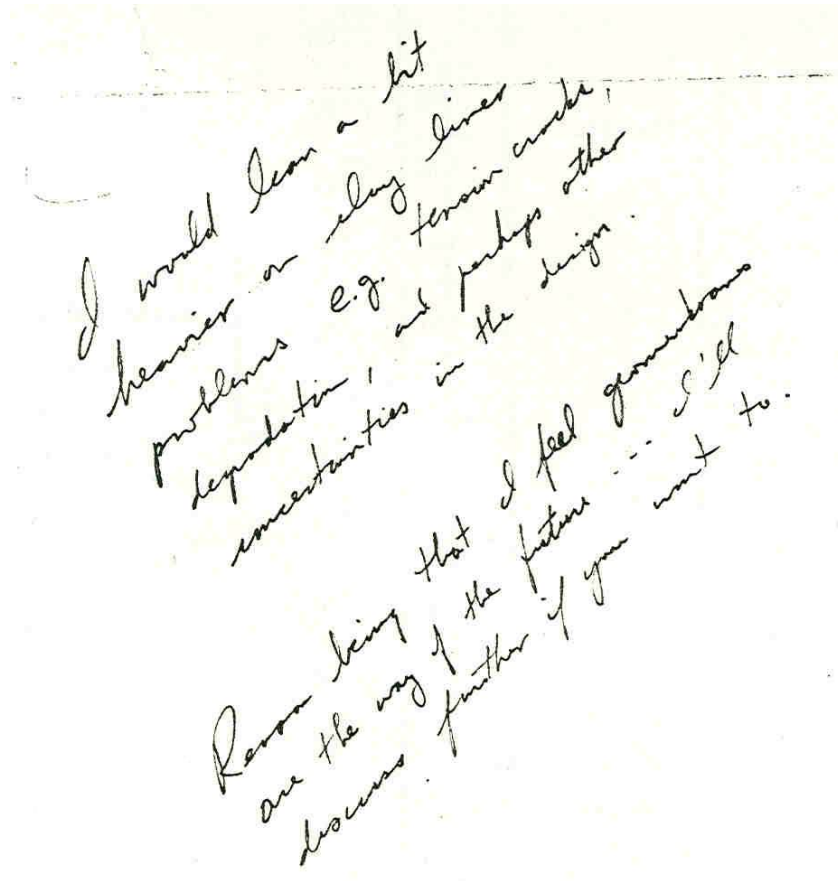 I would lean a bit
heavier on clay liner
problems e.g. tension cracks,
degradation, and perhaps other
uncertainties in the design.
Reason being that I feel geomembrans
are the way of the future --- I'll
discuss further if you want to.